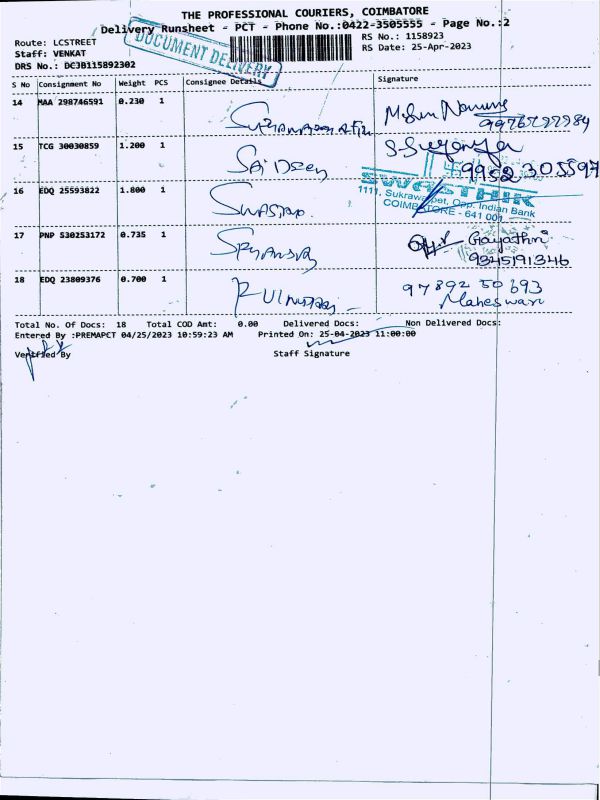 THE PROFESSIONAL COURIERS, COIMBATORE
Delivery Runsheet - PCT - Phone No.:0422-3505555 - Page No.:2
Route: LCSTREET
Staff: VENKAT
DRS No.: DCJB115892302
DOCUMENT DELIVERY
RS No.: 1158923
RS Date: 25-Apr-2023
S No Consignment No Weight PCS Consignee Details Signature
14 MAA 298746591 0.230 1
15 TCG 30030859 1.200 1
9952305597
SWASTHIK
COIMBATORE - 641 001
16 EDQ 25593822 1.800 1
17 PNP 530253172 0.735 1
Gayathri
9345191346
18 EDQ 23809376 0.700 1
97892 50693
Maheswari
Total No. Of Docs: 18 Total COD Amt: 0.00 Delivered Docs: Non Delivered Docs:
Entered By :PREMAPCT 04/25/2023 10:59:23 AM Printed On: 25-04-2023 11:00:00
Verified By Staff Signature